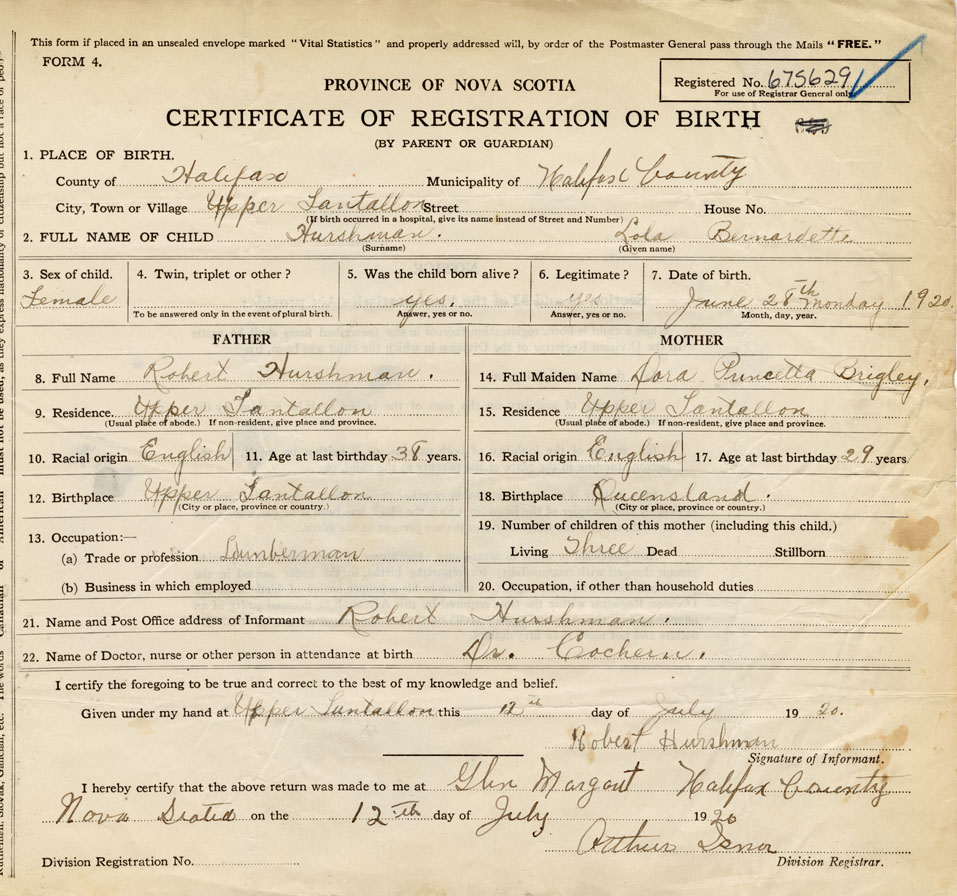 This form if placed in an unsealed envelope marked "Vital Statistics" and properly addressed will, by order of the Postmaster General pass through the Mails "FREE."
FORM 4.
Registered No. 675629
For use of Registrar General only
PROVINCE OF NOVA SCOTIA
CERTIFICATE OF REGISTRATION OF BIRTH
(BY PARENT OR GUARDIAN)
1. PLACE OF BIRTH.
County of Halifax Municipality of Halifax County
City, Town or Village Upper Tantallon Street House No.
(If birth occurred in a hospital, give its name instead of Street and Number)
2. FULL NAME OF CHILD Hurshman. Lola Bernardette
(Surname) (Given name)
3. Sex of child. 4. Twin, triplet or other? 5. Was the child born alive? 6. Legitimate? 7. Date of birth.
Female yes. yes June 28th monday 1920.
To be answered only in the event of plural birth. Answer, yes or no. Answer, yes or no. Month, day, year.
FATHER MOTHER
8. Full Name Robert Hurshman. 14. Full Maiden Name Dora Princetta Brigley.
9. Residence. Upper Tantallon 15. Residence Upper Tantallon
(Usual place of abode.) If non-resident, give place and province. (Usual place of abode.) If non-resident, give place and province.
10. Racial origin English 11. Age at last birthday 38 years. 16. Racial origin English 17. Age at last birthday 29 years.
12. Birthplace Upper Tantallon 18. Birthplace Queensland.
(City or place, province or country.) (City or place, province or country.)
13. Occupation:— 19. Number of children of this mother (including this child.)
(a) Trade or profession Lumberman Living Three Dead Stillborn
(b) Business in which employed 20. Occupation, if other than household duties
21. Name and Post Office address of Informant Robert Hurshman.
22. Name of Doctor, nurse or other person in attendance at birth Dr. Cochern.
I certify the foregoing to be true and correct to the best of my knowledge and belief.
Given under my hand at Upper Tantallon this 12th day of July 1920.
Robert Hurshman
Signature of Informant.
I hereby certify that the above return was made to me at Glen Margart Halifax County
Nova Scotia on the 12th day of July 1920
Arthur
Division Registration No. Division Registrar.